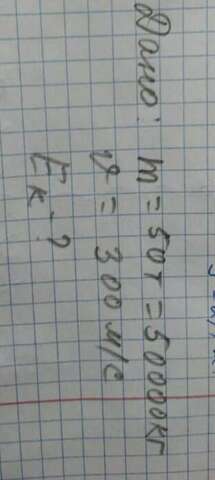 Дано: m = 50т = 50000кг
v = 300 м/с
Eк - ?